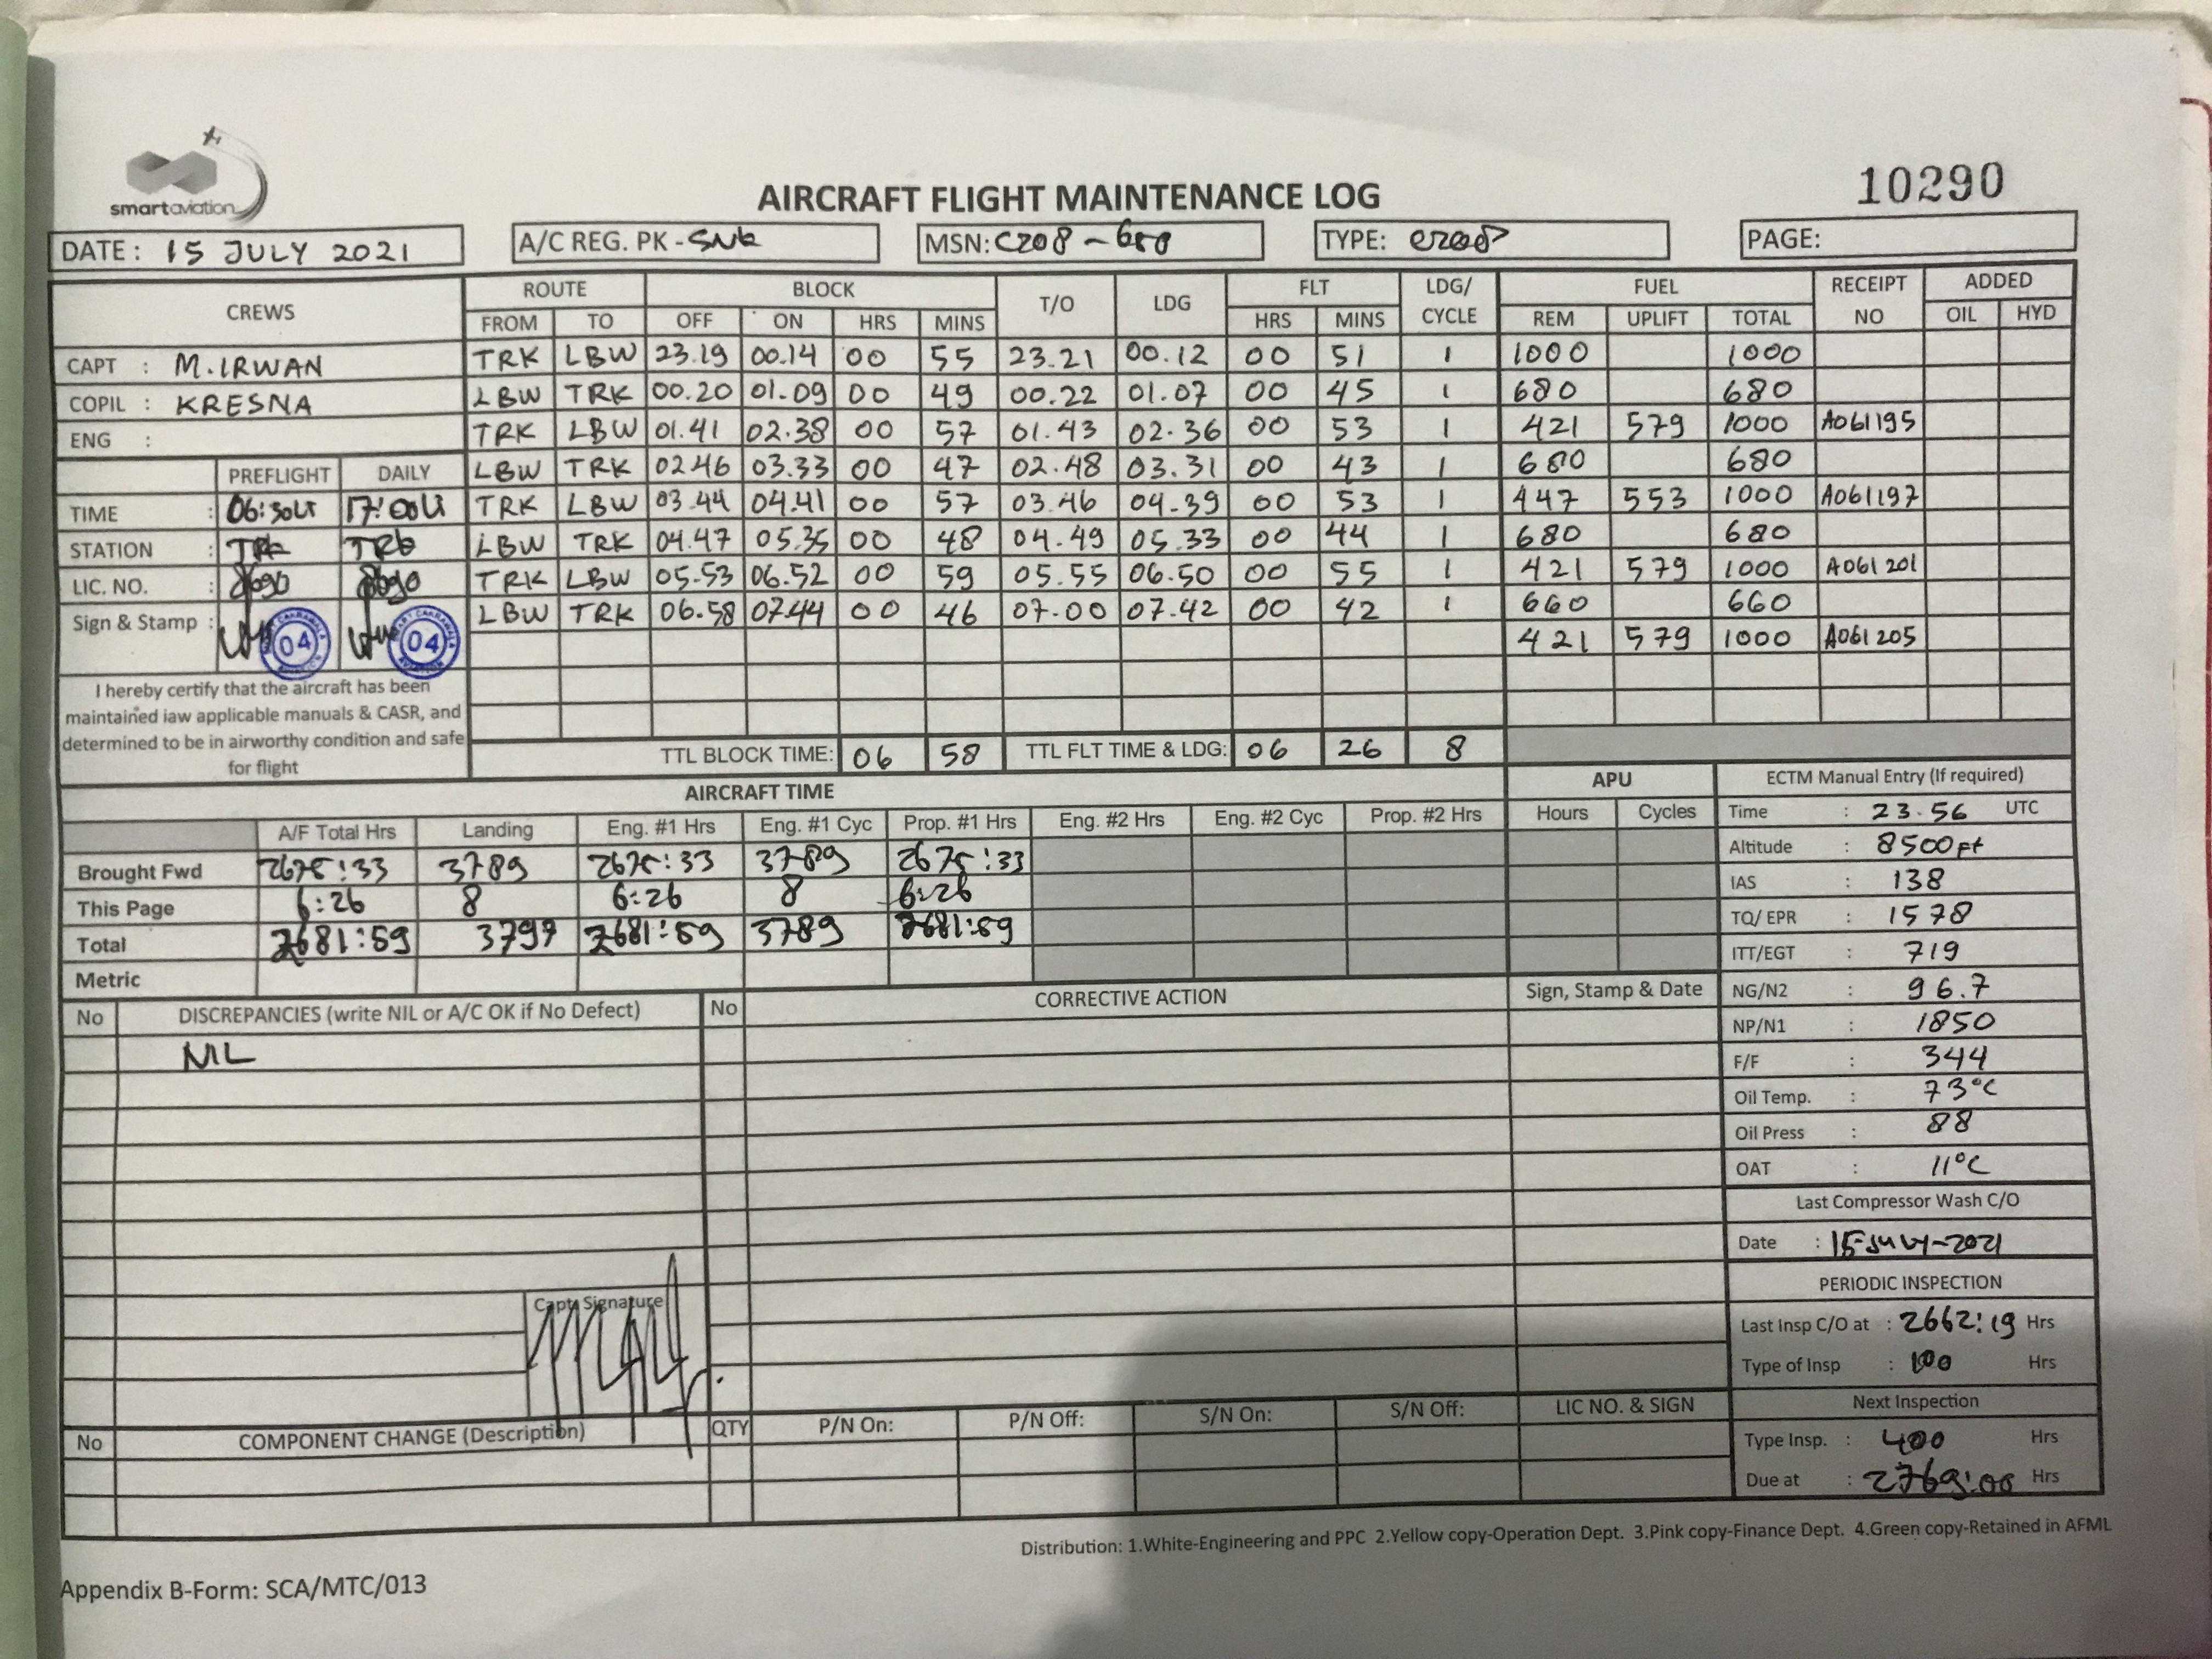 smartaviation
10290
AIRCRAFT FLIGHT MAINTENANCE LOG
DATE : 15 JULY 2021 A/C REG. PK - SNK MSN: C208 - TYPE: C208 PAGE:
CREWS ROUTE BLOCK T/O LDG FLT LDG/ CYCLE FUEL RECEIPT NO ADDED
FROM TO OFF ON HRS MINS HRS MINS REM UPLIFT TOTAL OIL HYD
CAPT : M. IRWAN TRK LBW 23.19 00.14 00 55 23.21 00.12 00 51 1 1000 1000
COPIL : KRESNA LBW TRK 00.20 01.09 00 49 00.22 01.07 00 45 1 680 680
ENG : TRK LBW 01.41 02.38 00 57 01.43 02.36 00 53 1 421 579 1000 A061195
PREFLIGHT DAILY LBW TRK 02.46 03.33 00 47 02.48 03.31 00 43 1 680 680
TIME : 06:30LT 17:00LT TRK LBW 03.44 04.41 00 57 03.46 04.39 00 53 1 447 553 1000 A061197
STATION : TRK TRK LBW TRK 04.47 05.35 00 48 04.49 05.33 00 44 1 680 680
LIC. NO. : TRK LBW 05.53 06.52 00 59 05.55 06.50 00 55 1 421 579 1000 A061201
Sign & Stamp : 04 04 LBW TRK 06.58 07.44 00 46 07.00 07.42 00 42 1 660 660
421 579 1000 A061205
I hereby certify that the aircraft has been
maintained iaw applicable manuals & CASR, and
determined to be in airworthy condition and safe
for flight
TTL BLOCK TIME: 06 58 TTL FLT TIME & LDG: 06 26 8
AIRCRAFT TIME APU ECTM Manual Entry (If required)
A/F Total Hrs Landing Eng. #1 Hrs Eng. #1 Cyc Prop. #1 Hrs Eng. #2 Hrs Eng. #2 Cyc Prop. #2 Hrs Hours Cycles Time : 23.56 UTC
Brought Fwd 2675:33 3789 2675:33 3789 2675:33 Altitude : 8500 ft
This Page 6:26 8 6:26 8 6:26 IAS : 138
TQ/ EPR : 1578
Total 2681:59 3797 2681:59 3789 2681:59
Metric ITT/EGT : 719
No DISCREPANCIES (write NIL or A/C OK if No Defect) No CORRECTIVE ACTION Sign, Stamp & Date NG/N2 : 96.7
NIL NP/N1 : 1850
F/F : 344
Oil Temp. : 73°C
Oil Press : 88
OAT : 11°C
Last Compressor Wash C/O
Date : 15-JULY-2021
PERIODIC INSPECTION
Capt. Signature
Last Insp C/O at : 2662:19 Hrs
Type of Insp : 100 Hrs
Next Inspection
No COMPONENT CHANGE (Description) QTY P/N On: P/N Off: S/N On: S/N Off: LIC NO. & SIGN
Type Insp. : 400 Hrs
Due at : 2769:00 Hrs
Distribution: 1.White-Engineering and PPC 2.Yellow copy-Operation Dept. 3.Pink copy-Finance Dept. 4.Green copy-Retained in AFML
Appendix B-Form: SCA/MTC/013